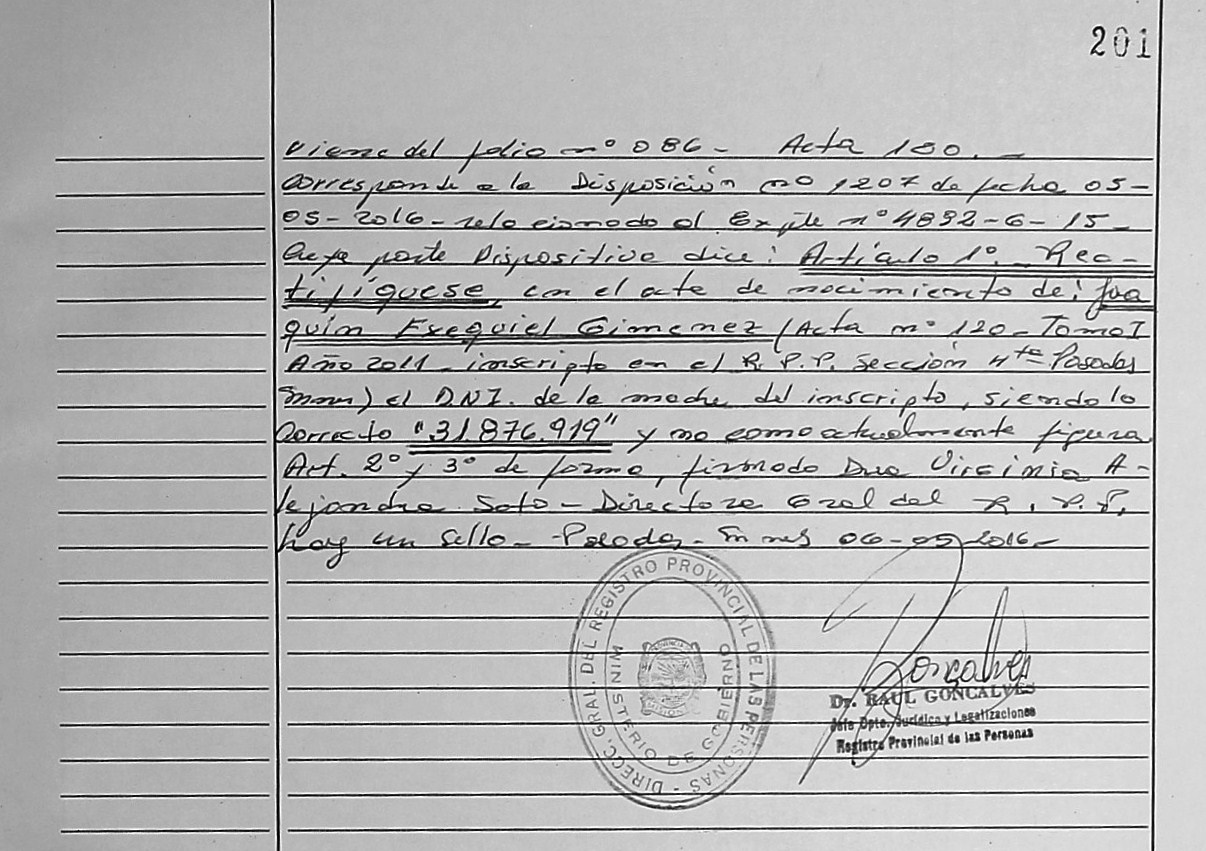 201
Viene del folio nº 086 - Acta 120. -
Corresponde a la Disposición nº 1207 de fecha 05-
05-2016 - relacionado al Expte nº 4892-6-15 -
Cuya parte Dispositiva dice: Artículo 1º. - Rec-
tifíquese, en el acta de nacimiento de: Joa
quín Exequiel Gimenez (Acta nº 120 - Tomo I
Año 2011 - inscripto en el R. P. P. Sección 4ta Posadas
Mnes) el D.N.I. de la madre del inscripto, siendo lo
Correcto "31.876.919" y no como actualmente figura
Art. 2º y 3º de forma, firmado Dra Virginia A-
lejandra Soto - Directora Gral del R. P. P.
hay un Sello - Posadas - Mnes 06-05-2016 -
DIRECC. GRAL. DEL REGISTRO PROVINCIAL DE LAS PERSONAS -
MINISTERIO DE GOBIERNO
Goncalves
Dr. RAUL GONCALVES
Jefe Dpto. Jurídica y Legalizaciones
Registro Provincial de las Personas